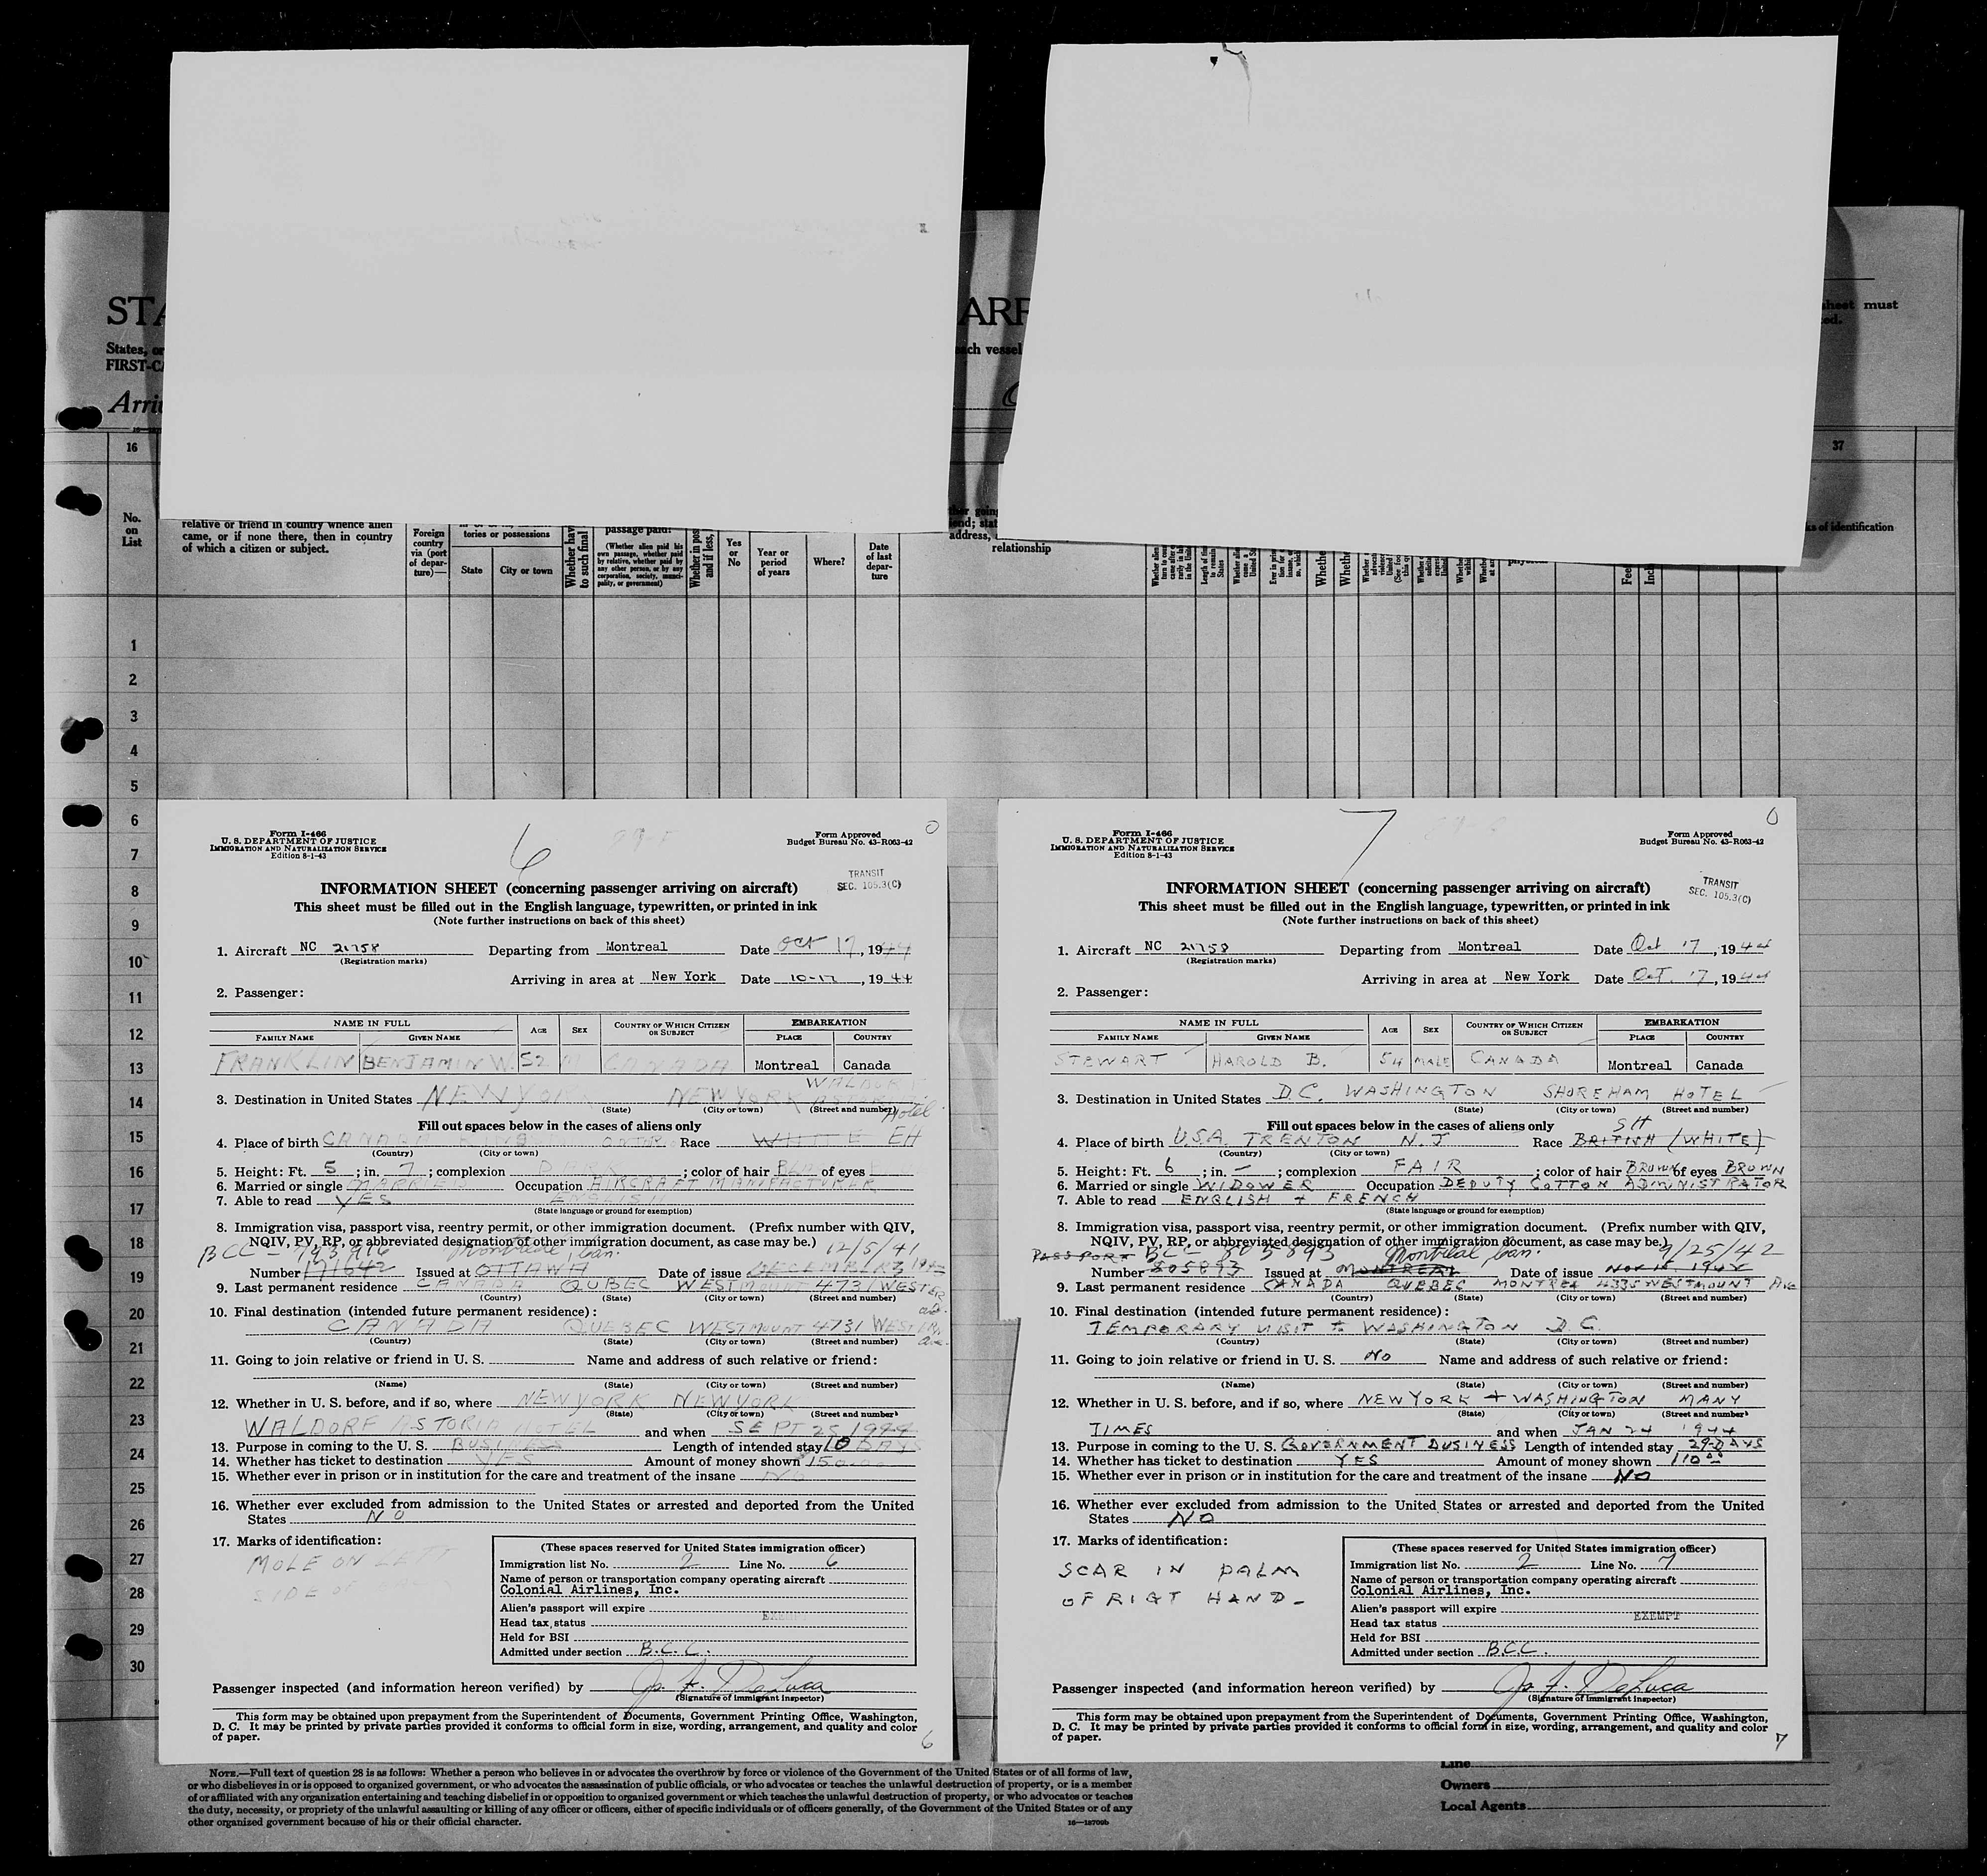 STA
ARR
sheet must
ed.
States, or
each vessel
FIRST-CA
Arri
16
37
No.
on
List
relative or friend in country whence alien
came, or if none there, then in country
of which a citizen or subject.
Foreign
country
via (port
of depar-
ture)—
tories or possessions
State
City or town
Whether have
to such final
passage paid?
(Whether alien paid his
own passage, whether paid
by relative, whether paid by
any other person, or by any
corporation, society, munici-
pality, or government)
Whether in pos
and if less,
Yes
or
No
Year or
period
of years
Where?
Date
of last
depar-
ture
ther going
end; stat
address,
relationship
ks of identification
1
2
3
4
5
6
7
8
9
10
11
12
13
14
15
16
17
18
19
20
21
22
23
24
25
26
27
28
29
30
Form I-466
U. S. DEPARTMENT OF JUSTICE
IMMIGRATION AND NATURALIZATION SERVICE
Edition 8-1-43
6
Form Approved
Budget Bureau No. 43-R063-42
TRANSIT
SEC. 105.3(C)
INFORMATION SHEET (concerning passenger arriving on aircraft)
This sheet must be filled out in the English language, typewritten, or printed in ink
(Note further instructions on back of this sheet)
1. Aircraft NC 21758 Departing from Montreal Date Oct 17, 1944
(Registration marks)
Arriving in area at New York Date 10-17, 1944
2. Passenger:
NAME IN FULL
FAMILY NAME GIVEN NAME AGE SEX COUNTRY OF WHICH CITIZEN OR SUBJECT EMBARKATION PLACE COUNTRY
FRANKLIN BENJAMIN W. 52 M CANADA Montreal Canada
WALDORF
3. Destination in United States NEW YORK NEW YORK ASTORIA Hotel
(State) (City or town) (Street and number)
Fill out spaces below in the cases of aliens only
4. Place of birth CANADA Race WHITE EH
(Country) (City or town)
5. Height: Ft. 5; in. 7; complexion DARK; color of hair BLK of eyes
6. Married or single MARRIED Occupation AIRCRAFT MANUFACTURER
7. Able to read YES ENGLISH
(State language or ground for exemption)
8. Immigration visa, passport visa, reentry permit, or other immigration document. (Prefix number with QIV,
NQIV, PV, RP, or abbreviated designation of other immigration document, as case may be.)
BCC - 793916 Montreal, Can. 12/5/41
Number 171642 Issued at OTTAWA Date of issue DECEMBER 3 1942
9. Last permanent residence CANADA QUBEC WESTMOUNT 4731 WESTER ave.
(Country) (State) (City or town) (Street and number)
10. Final destination (intended future permanent residence):
CANADA QUEBEC WESTMOUNT 4731 WEST
(Country) (State) (City or town) (Street and number)
11. Going to join relative or friend in U. S. Name and address of such relative or friend:
(Name) (State) (City or town) (Street and number)
12. Whether in U. S. before, and if so, where NEW YORK NEW YORK
(State) (City or town) (Street and number)
WALDORF ASTORIA HOTEL and when SEPT 25 1944
13. Purpose in coming to the U. S. BUSINESS Length of intended stay 10 DAYS
14. Whether has ticket to destination YES Amount of money shown 150.00
15. Whether ever in prison or in institution for the care and treatment of the insane NO
16. Whether ever excluded from admission to the United States or arrested and deported from the United
States NO
17. Marks of identification:
MOLE ON LEFT
SIDE OF
(These spaces reserved for United States immigration officer)
Immigration list No. 2 Line No. 6
Name of person or transportation company operating aircraft
Colonial Airlines, Inc.
Alien's passport will expire
Head tax status EXEMPT
Held for BSI
Admitted under section B.C.C.
Passenger inspected (and information hereon verified) by Jo. F. DeLuca
(Signature of immigrant inspector)
This form may be obtained upon prepayment from the Superintendent of Documents, Government Printing Office, Washington,
D. C. It may be printed by private parties provided it conforms to official form in size, wording, arrangement, and quality and color
of paper.
6
Form I-466
U. S. DEPARTMENT OF JUSTICE
IMMIGRATION AND NATURALIZATION SERVICE
Edition 8-1-43
7
Form Approved
Budget Bureau No. 43-R063-42
TRANSIT
SEC. 105.3(C)
INFORMATION SHEET (concerning passenger arriving on aircraft)
This sheet must be filled out in the English language, typewritten, or printed in ink
(Note further instructions on back of this sheet)
1. Aircraft NC 21758 Departing from Montreal Date Oct 17, 1944
(Registration marks)
Arriving in area at New York Date Oct. 17, 1944
2. Passenger:
NAME IN FULL
FAMILY NAME GIVEN NAME AGE SEX COUNTRY OF WHICH CITIZEN OR SUBJECT EMBARKATION PLACE COUNTRY
STEWART HAROLD B. 54 MALE CANADA Montreal Canada
3. Destination in United States D.C. WASHINGTON SHOREHAM HOTEL
(State) (City or town) (Street and number)
Fill out spaces below in the cases of aliens only
SH
4. Place of birth U.S.A. TRENTON N.J Race BRITISH (WHITE)
(Country) (City or town)
5. Height: Ft. 6; in. -; complexion FAIR; color of hair BROWN of eyes BROWN
6. Married or single WIDOWER Occupation DEPUTY COTTON ADMINISTRATOR
7. Able to read ENGLISH + FRENCH
(State language or ground for exemption)
8. Immigration visa, passport visa, reentry permit, or other immigration document. (Prefix number with QIV,
NQIV, PV, RP, or abbreviated designation of other immigration document, as case may be.)
PASSPORT BCC- 805893 Montreal, Can. 9/25/42
Number 805893 Issued at MONTREAL Date of issue NOV 15, 1942
9. Last permanent residence CANADA QUEBEC MONTREAL 4335 WESTMOUNT AVE
(Country) (State) (City or town) (Street and number)
10. Final destination (intended future permanent residence):
TEMPORARY VISIT TO WASHINGTON D.C.
(Country) (State) (City or town) (Street and number)
11. Going to join relative or friend in U. S. NO Name and address of such relative or friend:
(Name) (State) (City or town) (Street and number)
12. Whether in U. S. before, and if so, where NEW YORK + WASHINGTON MANY
(State) (City or town) (Street and number)
TIMES and when JAN 24 1944
13. Purpose in coming to the U. S. GOVERNMENT BUSINESS Length of intended stay 29 DAYS
14. Whether has ticket to destination YES Amount of money shown 110.00
15. Whether ever in prison or in institution for the care and treatment of the insane NO
16. Whether ever excluded from admission to the United States or arrested and deported from the United
States NO
17. Marks of identification:
SCAR IN PALM
OF RIGT HAND-
(These spaces reserved for United States immigration officer)
Immigration list No. 2 Line No. 7
Name of person or transportation company operating aircraft
Colonial Airlines, Inc.
Alien's passport will expire
Head tax status EXEMPT
Held for BSI
Admitted under section BCC.
Passenger inspected (and information hereon verified) by Jo. F. DeLuca
(Signature of immigrant inspector)
This form may be obtained upon prepayment from the Superintendent of Documents, Government Printing Office, Washington,
D. C. It may be printed by private parties provided it conforms to official form in size, wording, arrangement, and quality and color
of paper.
7
NOTE.—Full text of question 28 is as follows: Whether a person who believes in or advocates the overthrow by force or violence of the Government of the United States or of all forms of law,
or who disbelieves in or is opposed to organized government, or who advocates the assassination of public officials, or who advocates or teaches the unlawful destruction of property, or is a member
of or affiliated with any organization entertaining and teaching disbelief in or opposition to organized government or which teaches the unlawful destruction of property, or who advocates or teaches
the duty, necessity, or propriety of the unlawful assaulting or killing of any officer or officers, either of specific individuals or of officers generally, of the Government of the United States or of any
other organized government because of his or their official character.
16—18709b
Line
Owners
Local Agents